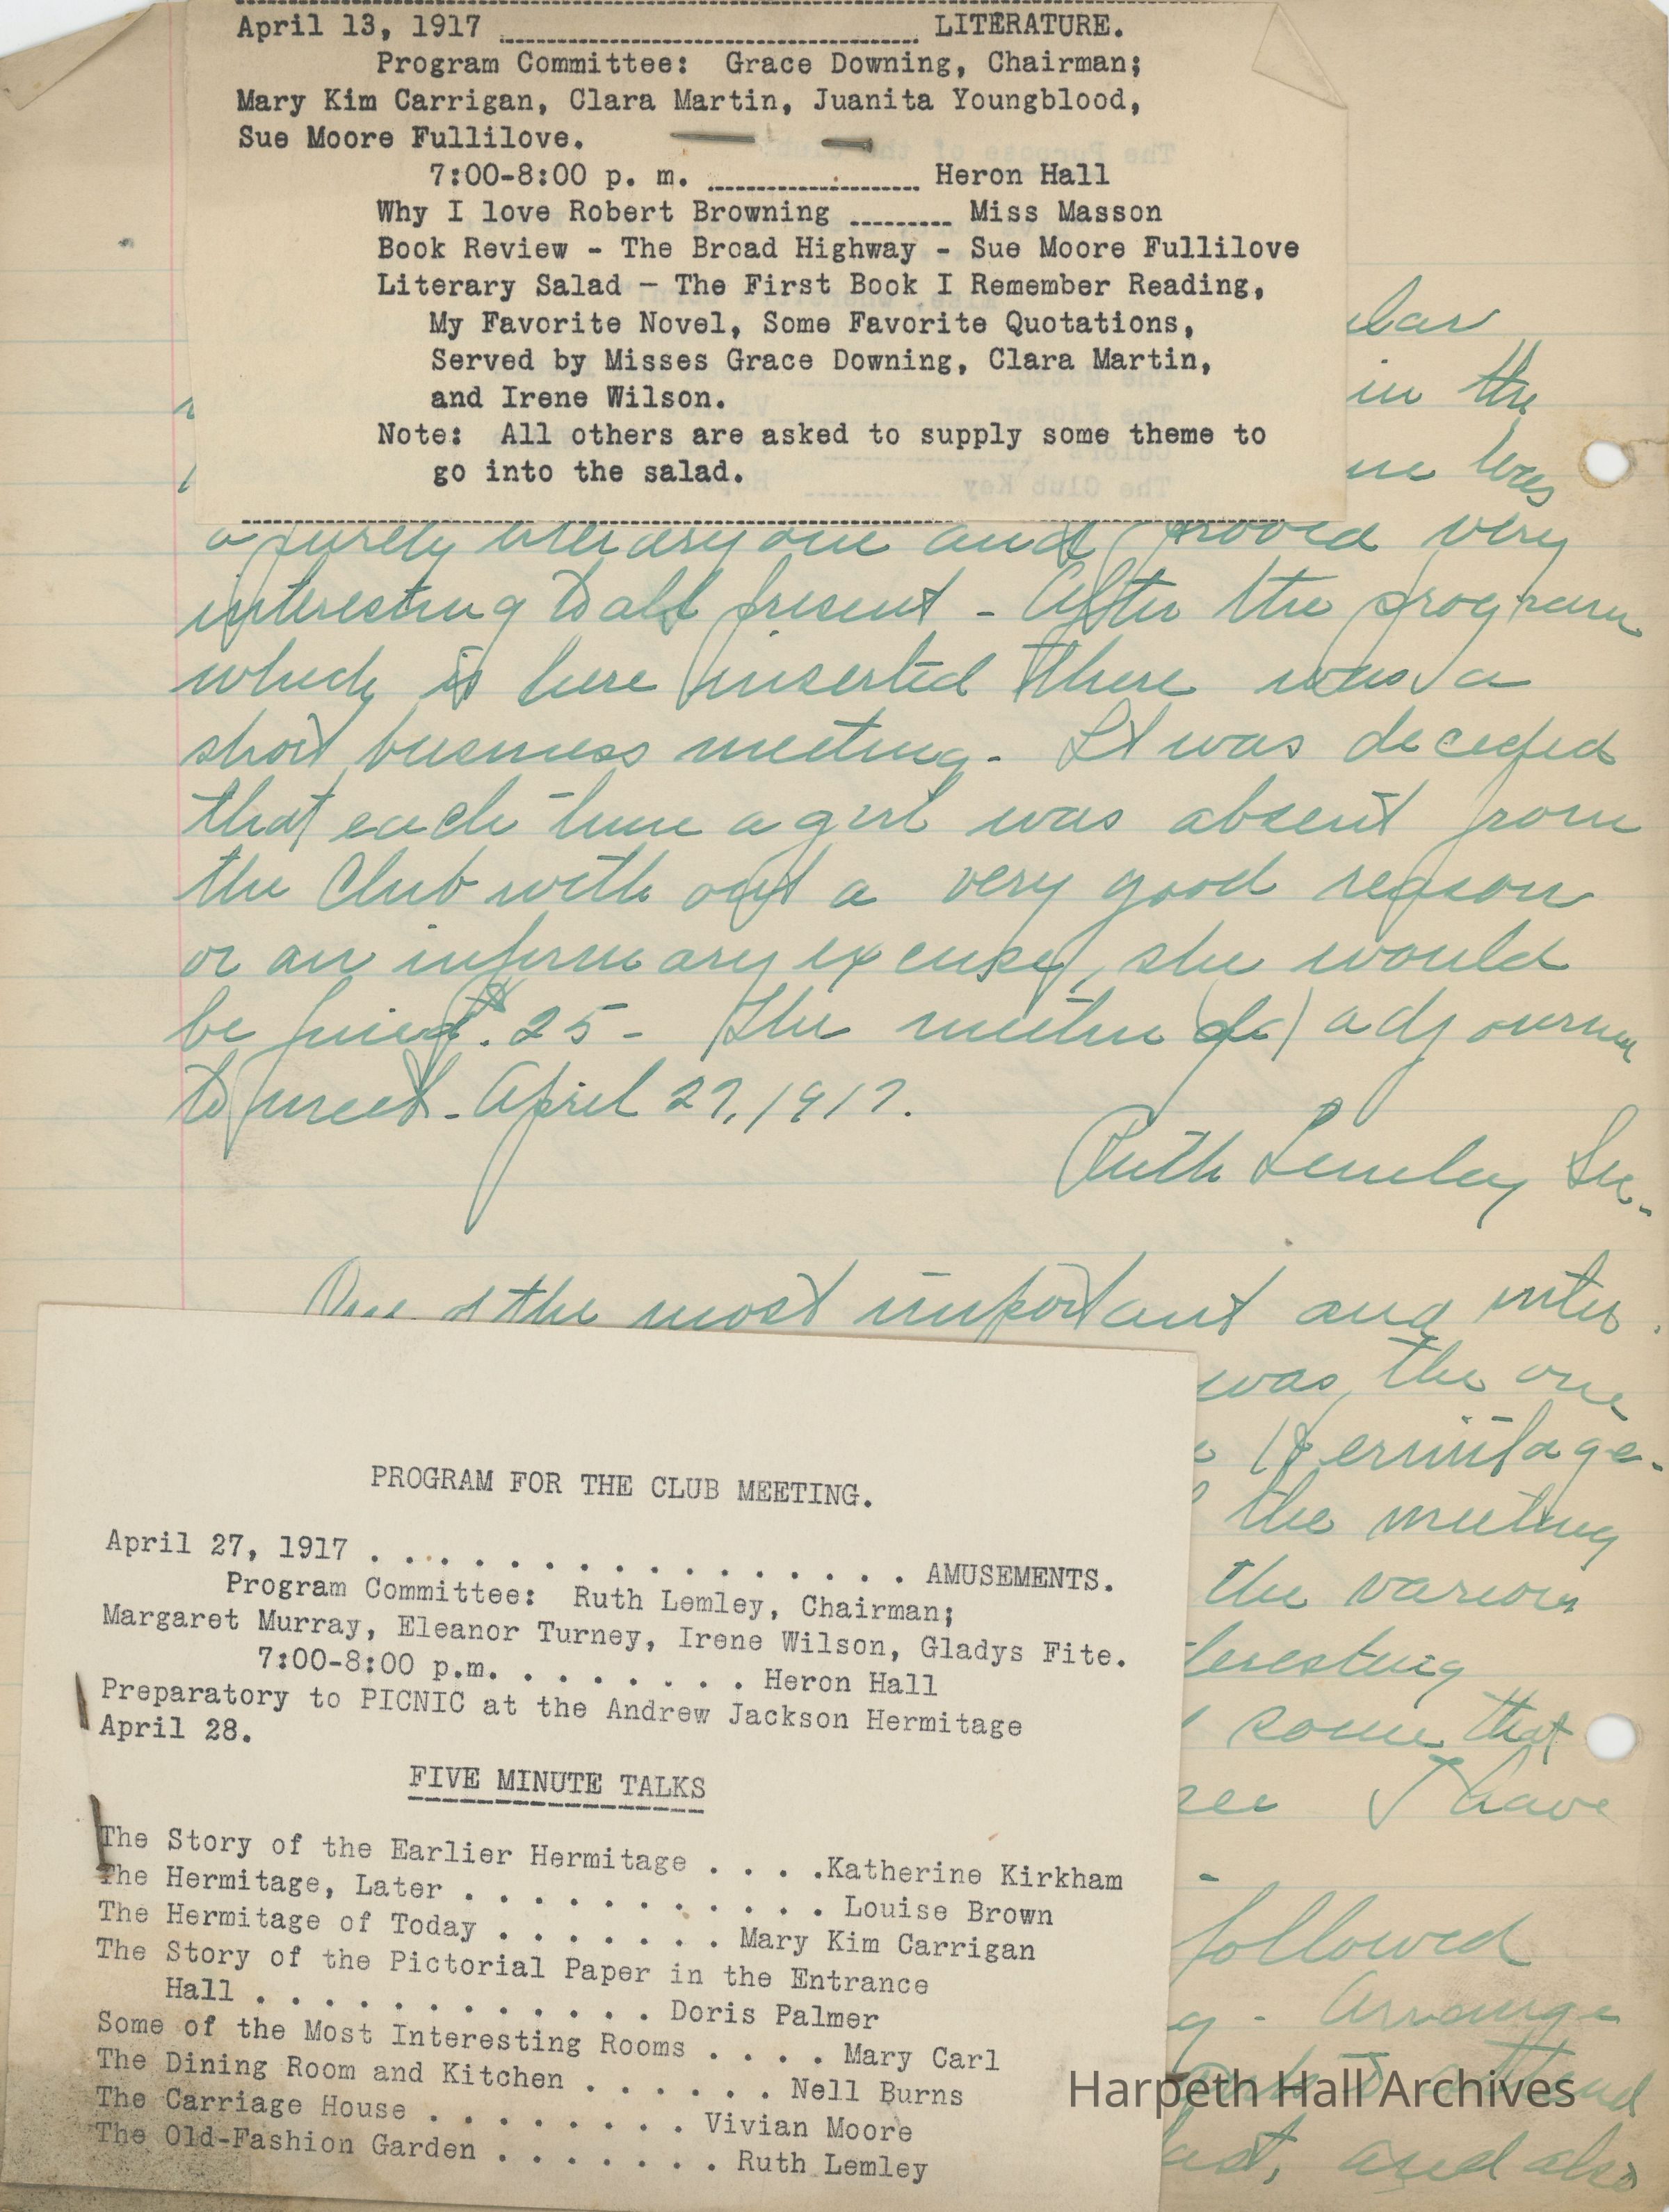 April 13, 1917 ................ LITERATURE.
Program Committee: Grace Downing, Chairman;
Mary Kim Carrigan, Clara Martin, Juanita Youngblood,
Sue Moore Fullilove.
7:00-8:00 p. m. ................ Heron Hall
Why I love Robert Browning ......... Miss Masson
Book Review - The Broad Highway - Sue Moore Fullilove
Literary Salad - The First Book I Remember Reading,
My Favorite Novel, Some Favorite Quotations,
Served by Misses Grace Downing, Clara Martin,
and Irene Wilson.
Note: All others are asked to supply some theme to
go into the salad.
in the
was
a purely literary one and proved very
interesting to all present - After the program
which is here inserted there was a
short business meeting. It was decided
that each time a girl was absent from
the Club with out a very good reason
or an infirmary excuse, she would
be fined $.25 - The meeting adjourned
to meet - April 27, 1917.
Ruth Lemley Sec.
One of the most important and inter
was the one
Hermitage.
the meeting
the various
teresting
some that
I have
followed
Arrange
and also
PROGRAM FOR THE CLUB MEETING.
April 27, 1917 . . . . . . . . . . . . . . . . AMUSEMENTS.
Program Committee: Ruth Lemley, Chairman;
Margaret Murray, Eleanor Turney, Irene Wilson, Gladys Fite.
7:00-8:00 p.m. . . . . . . . . Heron Hall
Preparatory to PICNIC at the Andrew Jackson Hermitage
April 28.
FIVE MINUTE TALKS
The Story of the Earlier Hermitage . . . .Katherine Kirkham
The Hermitage, Later . . . . . . . . . . . Louise Brown
The Hermitage of Today . . . . . . . Mary Kim Carrigan
The Story of the Pictorial Paper in the Entrance
Hall . . . . . . . . . . . . Doris Palmer
Some of the Most Interesting Rooms . . . . Mary Carl
The Dining Room and Kitchen . . . . . . Nell Burns
The Carriage House . . . . . . . . Vivian Moore
The Old-Fashion Garden . . . . . . . Ruth Lemley
Harpeth Hall Archives